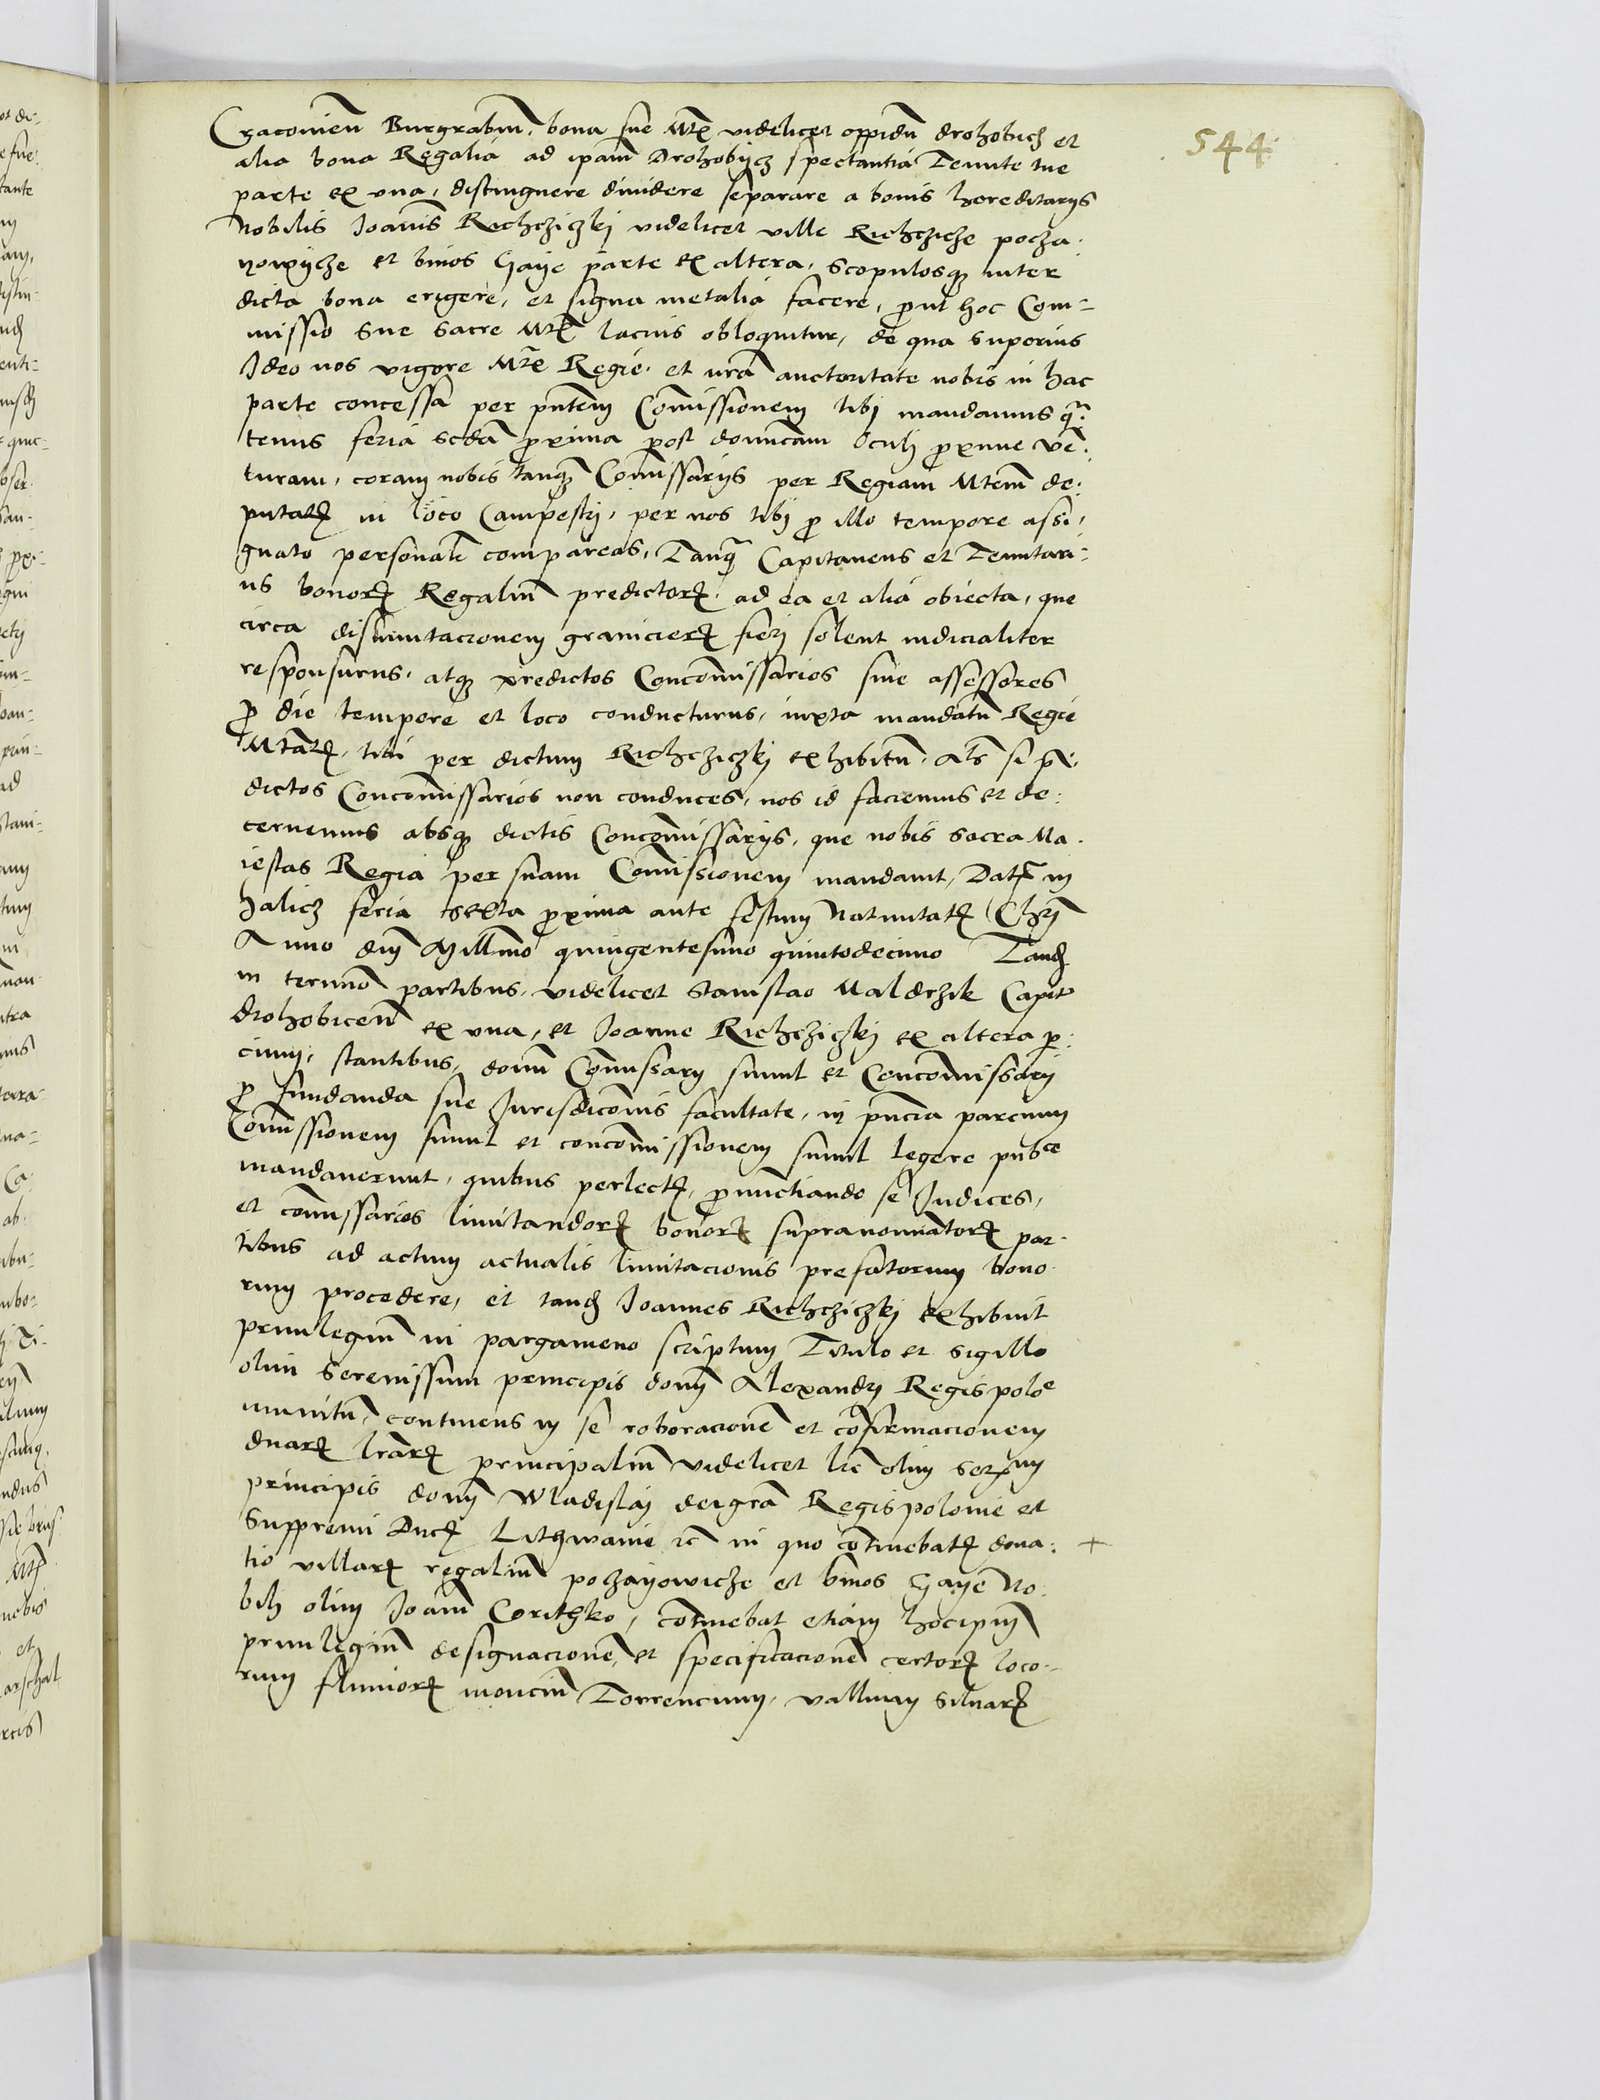 544
Cracovien̄ Burgrabiu̅, bona sue Mt̅s videlicet oppidu̅ drohobicz et
alia bona Regalia ad ipam̅ Drohobÿcz spectantia Tenute tue
parte ex vna, distinguere dividere separare a bonis hereditarijs
nobilis Joan̅is Richczickj videlicet ville Richczicze pocza-
yowycze et binos Gaye parte ex altera, scopulosq; inter
dicta bona erigere, et signa metalia facere, prout hoc Com-
missio Sue Sacre Mt̅s lacius obloquitur, de qua superius
Ideo nos vigore Mt̅e Regie, et vra̅ auctoritate nobis in hac
parte concessa per pn̅tem Com̅issionem tibj mandamus q̅a-
tenus feria scda̅ proxima post domi̅cam Oculj proxime ve̅-
turam, coram nobis tanq; Com̅issarijs per Regiam Mtem̅ de-
putatis in loco Campestrj, per nos tibj pro illo tempore assi-
gnato personalr̅ compareas, Tanq; Capitaneus et Tenutari-
us bonor̅ Regaliu̅ predictor̅, ad ea et alia obiecta, que
circa dislimitacionem granicier̅ fierj solent iudicialiter
responsurus, atq; predictos Concom̅issarios sive assessores
pro die tempore et loco conducturus, iuxta mandatu̅ Regie
Mta̅t̅, tibi per dictum Richczickj exhibitu̅, Als̅ si pre-
dictos Concom̅issarios non conduces, nos id faciemus et de-
cernemus absq; dictis Concom̅issarijs, que nobis sacra Ma-
iestas Regia per suam Com̅issionem mandavit, Dat̅ in
halicz feria sexta proxima ante festum Nativitat̅ Chrj̅
Anno dnj̅ Millimo̅ quingentesimo quintodecimo Tande̅
in termino̅ partibus, videlicet Stanislao Maldrzik Capit̅
drohobicen̅ ex vna, et Joanne Richczickj ex altera par-
cium, stantibus, domi̅ Com̅issarij simul et Concom̅issarij
pro fundanda sue Jurisdico̅nis facultate, in pn̅cia parcium
Com̅issionem simul et concom̅issionem simul legere pub̅ce
mandaverunt, quibus perlect̅, pronuncciando se Judices,
et com̅issarios limitandor̅ bonor̅ supranomi̅ator̅ par-
tibus ad actum actualis limitacionis prefatorum bono-
rum procedere, et tande̅ Joannes Richczickj exhibuit
privilegiu̅ in pargameno scriptum Titulo et sigillo
olim Serenissimi principis domj̅ Alexandrj Regis poloe̅
munitu̅, continens in se roboracione̅ et co̅firmacionem
duar̅ lr̅ar̅ principaliu̅ videlicet lre̅ olim Ser̅mi
principis domj̅ Wladislaj dei gra̅ Regis polonie et
Suppremi Ducis Lithwanie rc̅ in quo co̅tinebat̅ dona-
tio villar̅ regaliu̅ poczayowicze et binos Gaye̅ No-
bilj olim Joan̅i Corithko, co̅tinebat etiam hoc ipm̅
privilegiu̅ designacione̅, et specificacione̅ certor̅ loco-
rum fluvior̅ monciu̅ Torrencium, vallium silvar̅